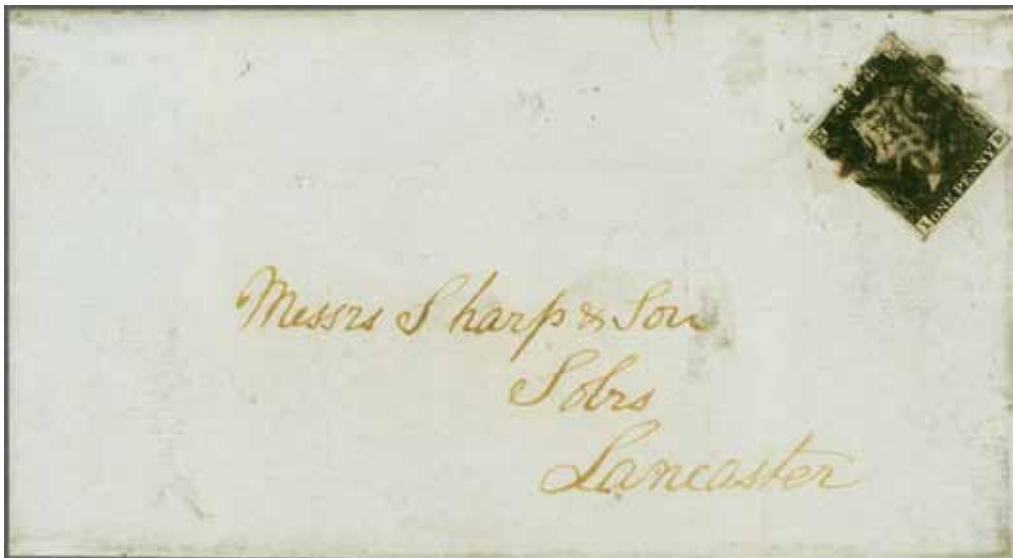 ONE PENNY
Messrs Sharp & Son
Solrs
Lancaster